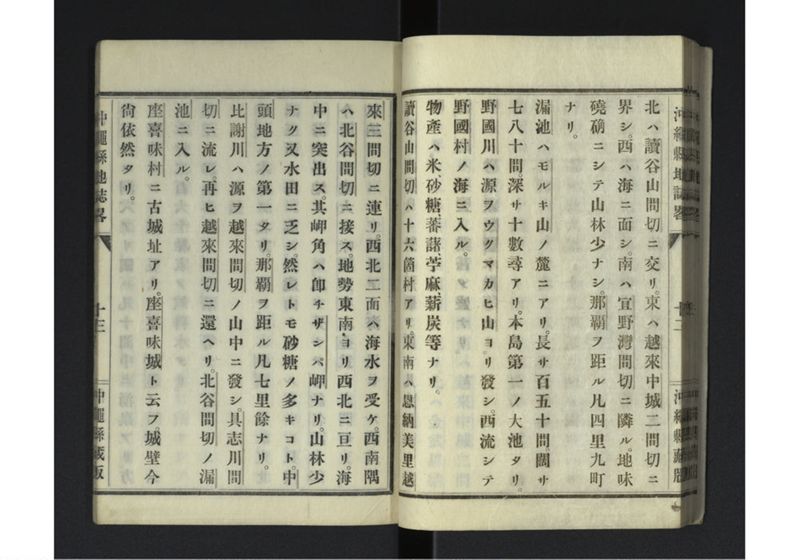 北ハ讀谷山間切ニ交リ。東ハ越來中城二間切ニ
界シ。西ハ海ニ面シ。南ハ宜野灣間切ニ隣ル。地味
磽确ニシテ山林少ナシ。那覇ヲ距ル凡四里九町
ナリ。
漏池ハモルキ山ノ麓ニアリ。長サ百五十間闊サ
七八十間。深サ十數尋アリ。本島第一ノ大池タリ。
野國川ハ源ヲウグマカヒ山ヨリ發シ。西流シテ
野國村ノ海ニ入ル。
物產ハ米砂糖蕃諸苧麻薪炭等ナリ。
讀谷山間切ハ十六箇村アリ。東南ハ恩納美里越
來三間切ニ連リ。西北二面ハ海水ヲ受ケ。西南隅
ハ北谷間切ニ接ス。地勢東南ヨリ西北ニ亘リ。海
中ニ突出ス。其岬角ハ卽チザンバ岬ナリ。山林少
ナク又水田ニ乏シ。然レトモ砂糖ノ多キコト。中
頭地方ノ第一タリ。那覇ヲ距ル凡七里餘ナリ。
比謝川ハ源ヲ越來間切ノ山中ニ發シ。具志川間
切ニ流レ。再ヒ越來間切ニ還ヘリ。北谷間切ノ漏
池ニ入ル。
座喜味村ニ古城址アリ。座喜味城ト云フ。城壁今
尙依然タリ。
沖繩縣地誌畧
十三
沖繩縣藏版